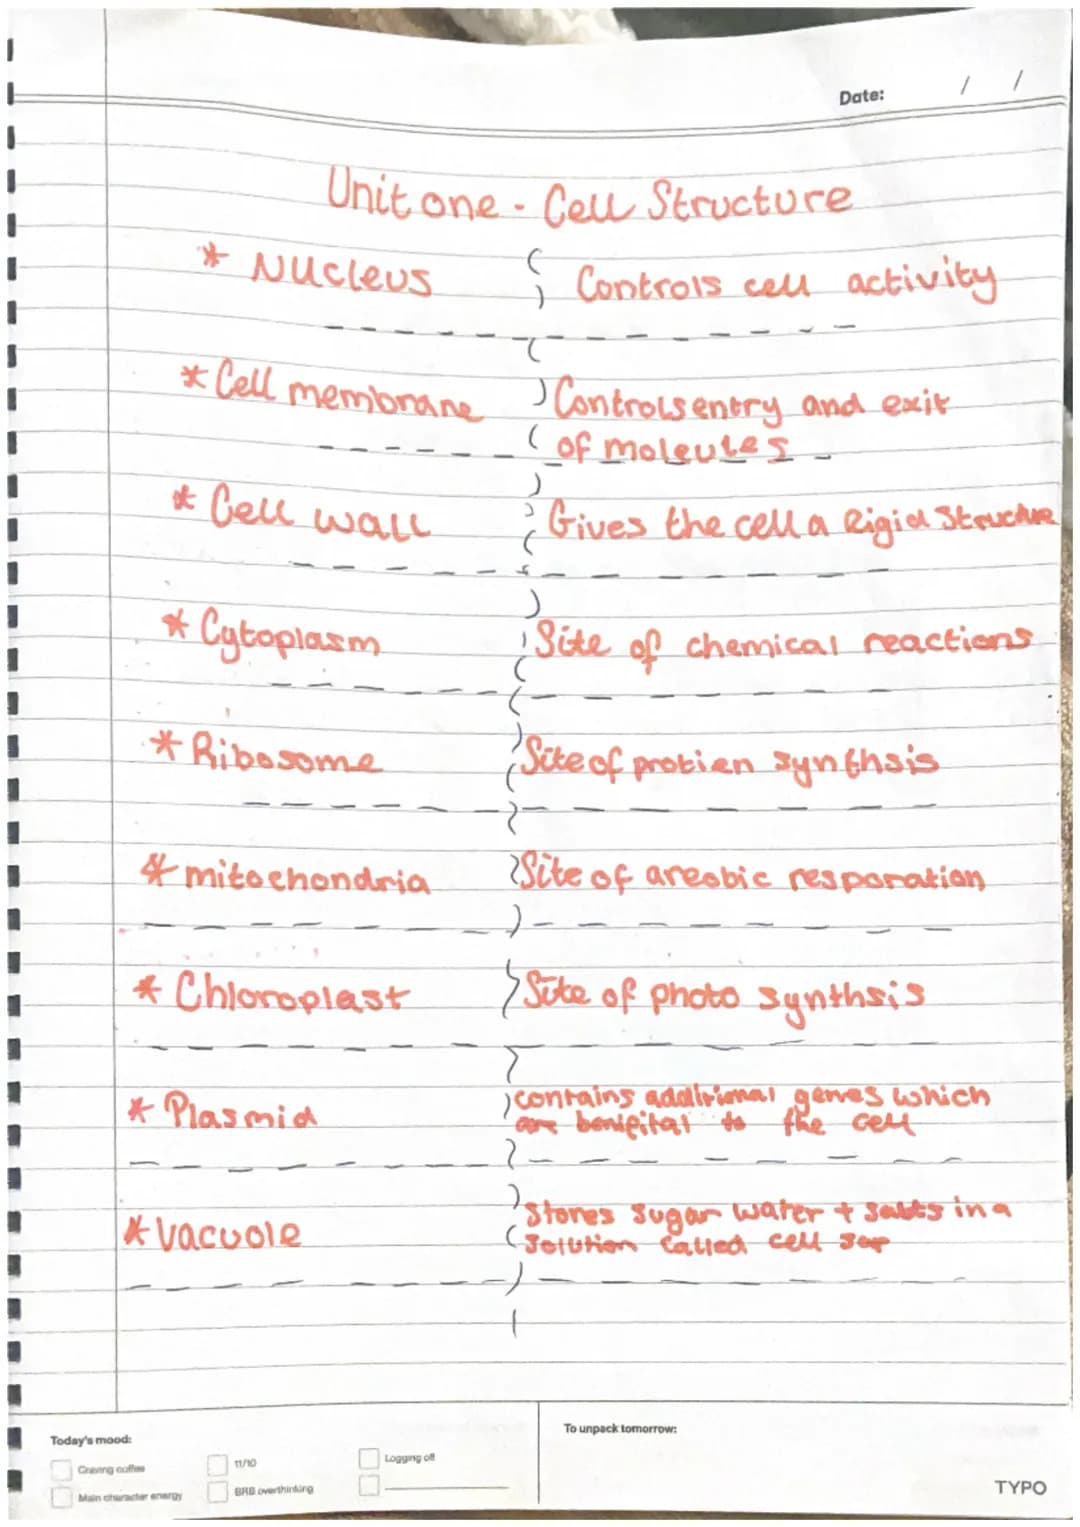 Date: / /
Unit one - Cell Structure
* Nucleus Controls cell activity
* Cell membrane Controls entry and exit
of moleules
* Cell wall Gives the cell a Rigid Structure
* Cytoplasm Site of chemical reactions
* Ribosome Site of protien synthsis
* mitochondria Site of areobic resporation
* Chloroplast Site of photo synthsis
* Plasmid contains additional genes which
are benifital to the cell
* Vacuole Stores sugar water + salts in a
solution called cell sap
Today's mood:
Craving coffee
11/10
Logging off
Main character energy
BRB overthinking
To unpack tomorrow:
TYPO